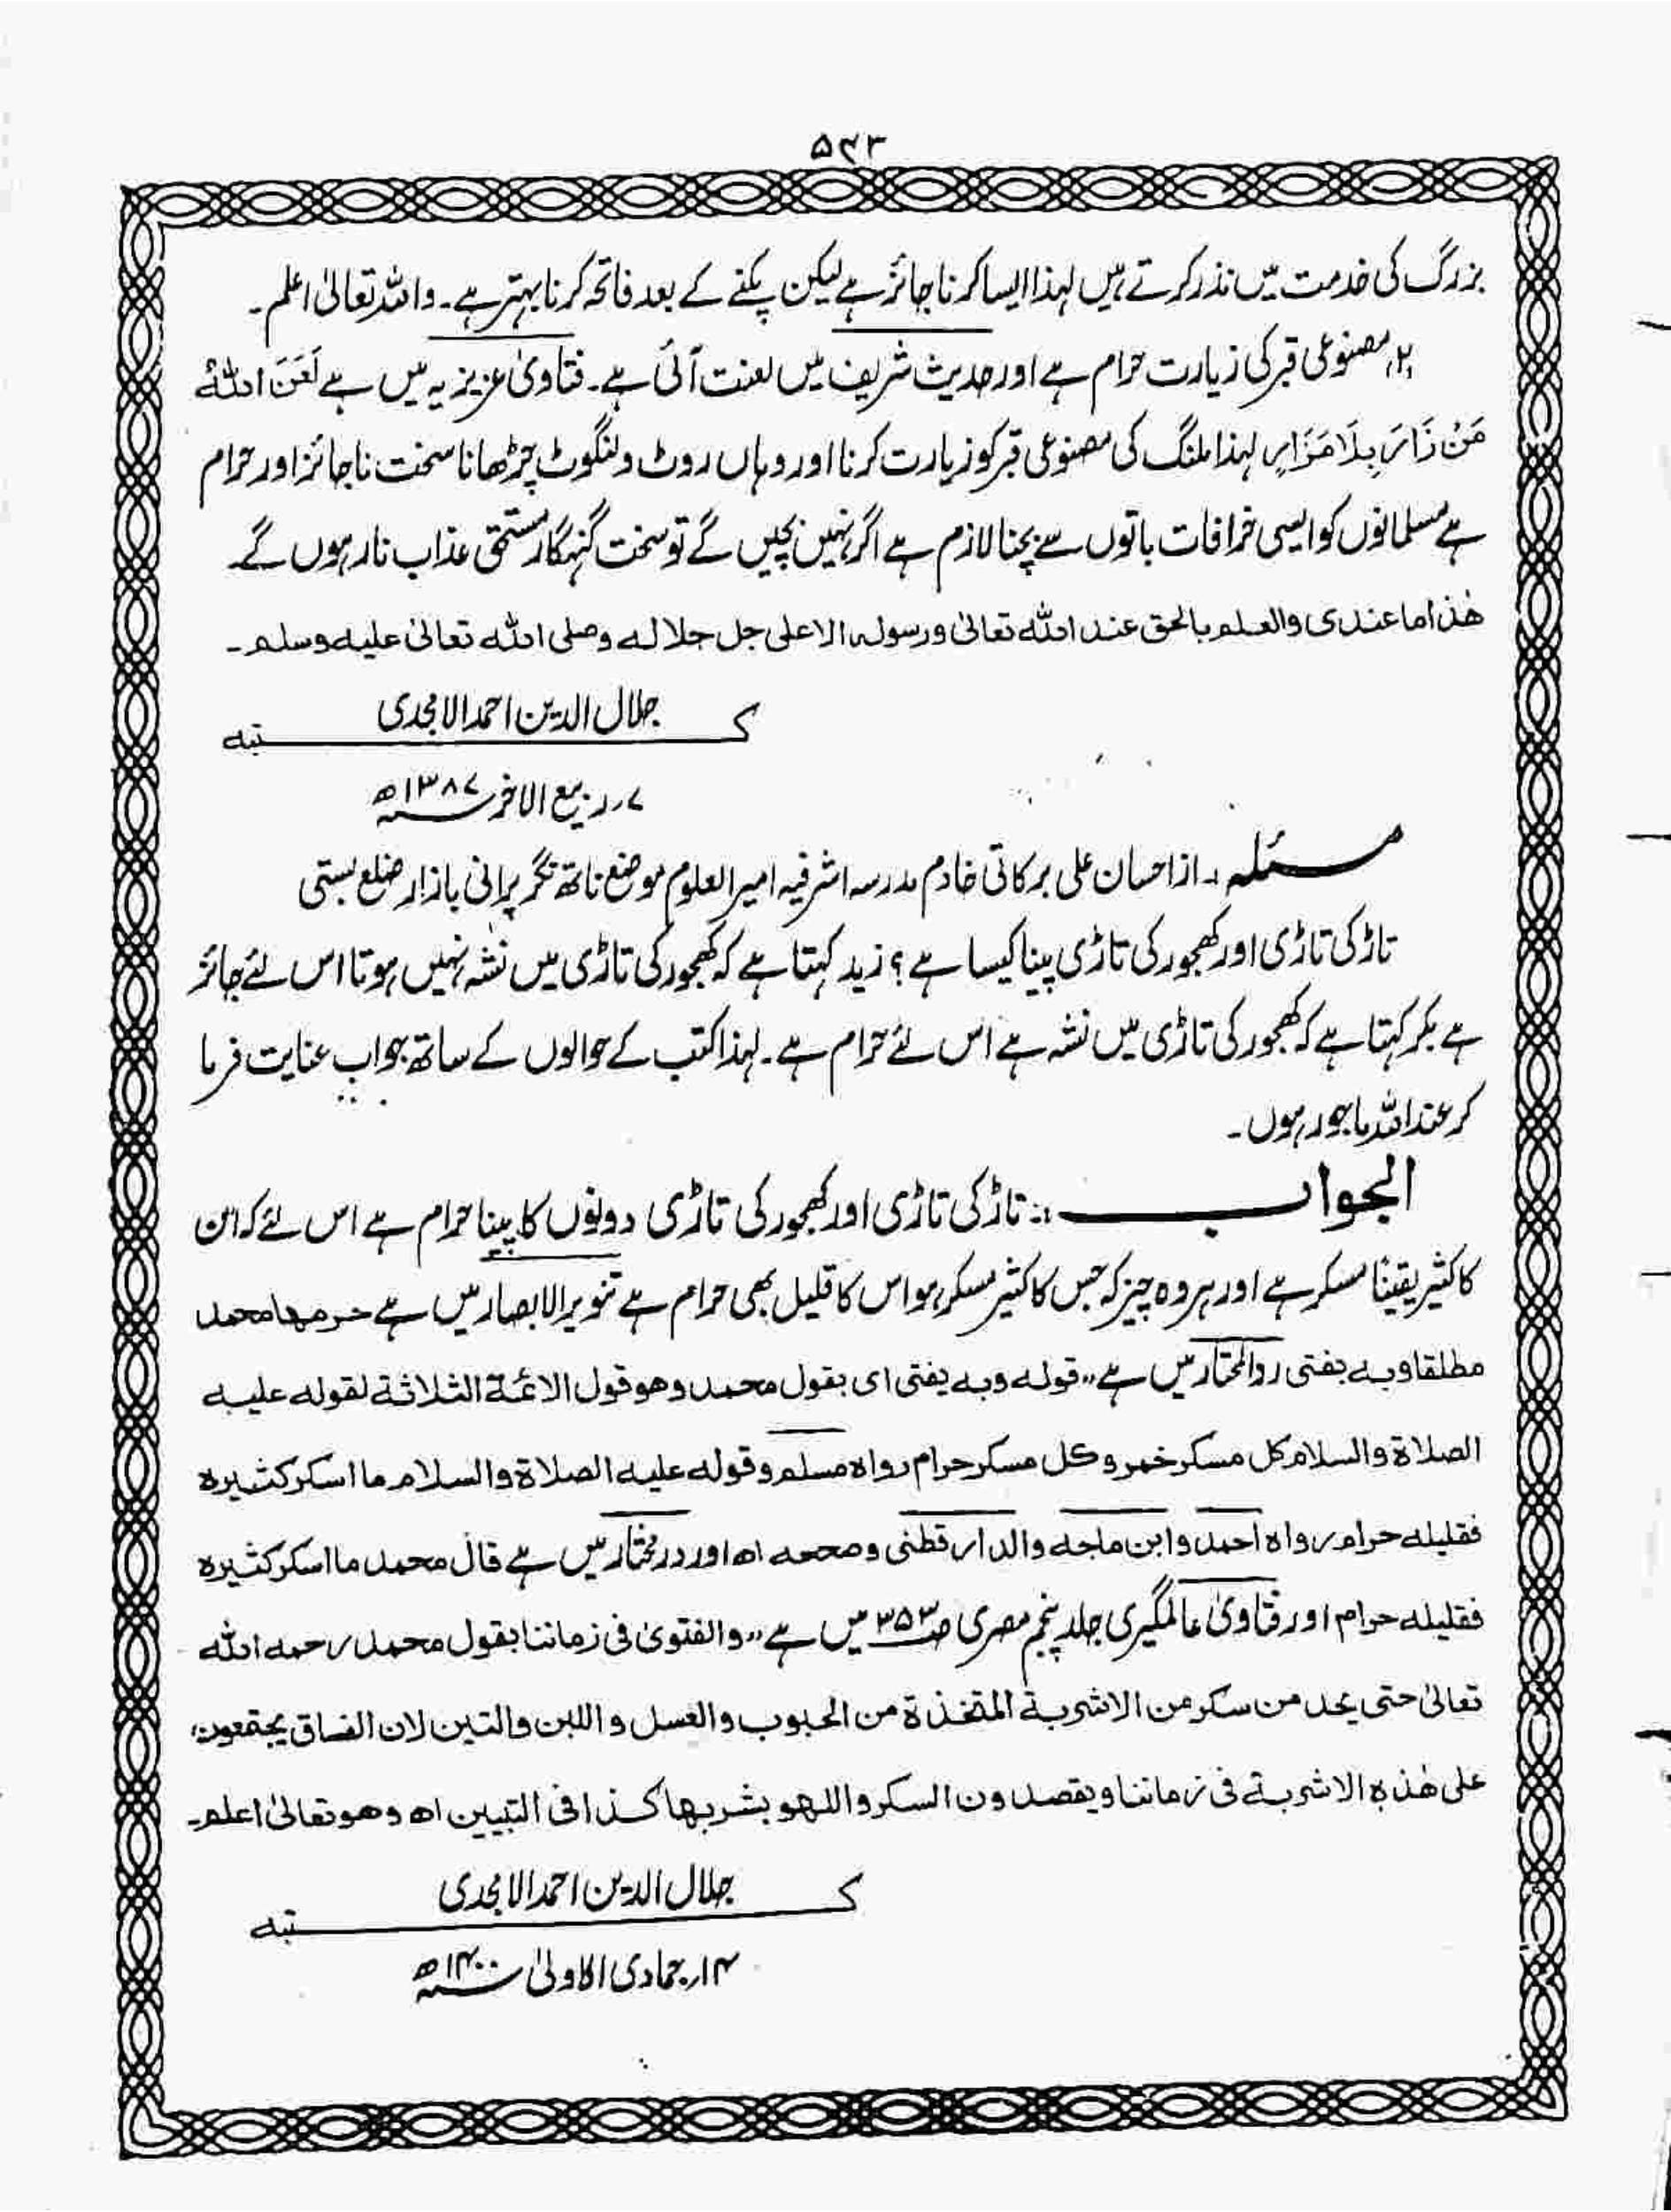 ۵۴۳
بزرگ کی خدمت میں نذر کرتے ہیں لہذا ایسا کرنا جائز ہے لیکن پکنے کے بعد فاتحہ کرنا بہتر ہے۔ واللہ تعالیٰ اعلم۔
(۲) مصنوعی قبر کی زیارت حرام ہے اور حدیث شریف میں لعنت آئی ہے۔ فتاویٰ عزیزیہ میں ہے لَعَنَ اللہُ
مَنْ زَارَ بِلَا مَزَارٍ لہذا ملنگ کی مصنوعی قبر کو زیارت کرنا اور وہاں روٹ ولنگوٹ چڑھانا سخت ناجائز اور حرام
ہے مسلمانوں کو ایسی خرافات باتوں سے بچنا لازم ہے اگر نہیں بچیں گے تو سخت گنہگار مستحق عذاب نار ہوں گے۔
ھٰذا ما عندی والعلم بالحق عند اللہ تعالیٰ ورسولہ الاعلی جل جلالہ وصلی اللہ تعالیٰ علیہ وسلم۔
جلال الدین احمد الامجدی
کتبہ
۷؍ ربیع الآخر سنہ ۱۳۸۷ھ
مسئلہ:۔ از احسان علی برکاتی خادم مدرسہ اشرفیہ امیر العلوم موضع ناتھ نگر پرانی بازار ضلع بستی
تاڑ کی تاڑی اور کھجور کی تاڑی پینا کیسا ہے؟ زید کہتا ہے کہ کھجور کی تاڑی میں نشہ نہیں ہوتا اس لئے جائز
ہے بکر کہتا ہے کہ کھجور کی تاڑی میں نشہ ہے اس لئے حرام ہے۔ لہذا کتب کے حوالوں کے ساتھ جواب عنایت فرما
کر عند اللہ ماجور ہوں۔
الجواب:۔ تاڑ کی تاڑی اور کھجور کی تاڑی دونوں کا پینا حرام ہے اس لئے کہ ان
کا کثیر یقینًا مسکر ہے اور ہر وہ چیز کہ جس کا کثیر مسکر ہو اس کا قلیل بھی حرام ہے تنویر الابصار میں ہے حرمھا محمد
مطلقا وبہ یفتی ردالمحتار میں ہے ،، قولہ وبہ یفتی ای بقول محمد وھو قول الائمۃ الثلاثۃ لقولہ علیہ
الصلاۃ والسلام کل مسکر خمر وکل مسکر حرام رواہ مسلم وقولہ علیہ الصلاۃ والسلام ما اسکر کثیرہ
فقلیلہ حرام رواہ احمد وابن ماجہ والدار قطنی وصححہ اھ اور درمختار میں ہے قال محمد ما اسکر کثیرہ
فقلیلہ حرام اور فتاویٰ عالمگیری جلد پنجم مصری ص ۳۵۳ میں ہے ،، والفتویٰ فی زماننا بقول محمد رحمہ اللہ
تعالیٰ حتی یحد من سکر من الاشربۃ المتخذۃ من الحبوب والعسل واللبن والتین لان الفساق یجتمعون
علی ھٰذہ الاشربۃ فی زماننا ویقصدون السکر واللھو بشربھا کذا فی التبیین اھ وھو تعالیٰ اعلم۔
جلال الدین احمد الامجدی
کتبہ
۱۴؍ جمادی الاولیٰ سنہ ۱۴۰۰ھ